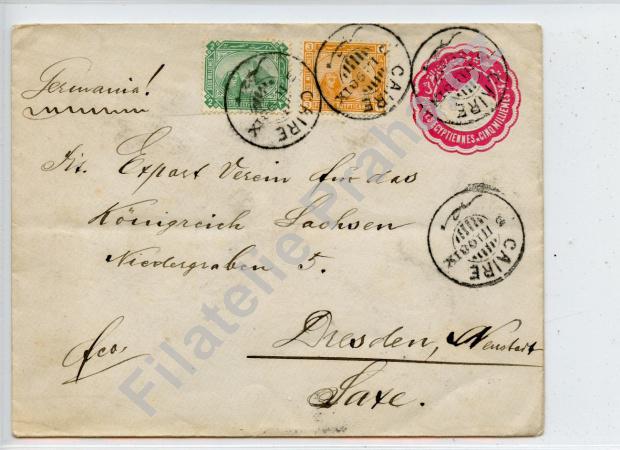 Germania!
CAIRE
CAIRE
CAIRE
EGYPTIENNES CINQ MILLIEMES
Export Verein für das
Königreich Sachsen
Niedergraben 5.
CAIRE
fco.
Dresden, Neustadt
Saxe.
Filatelie Praha